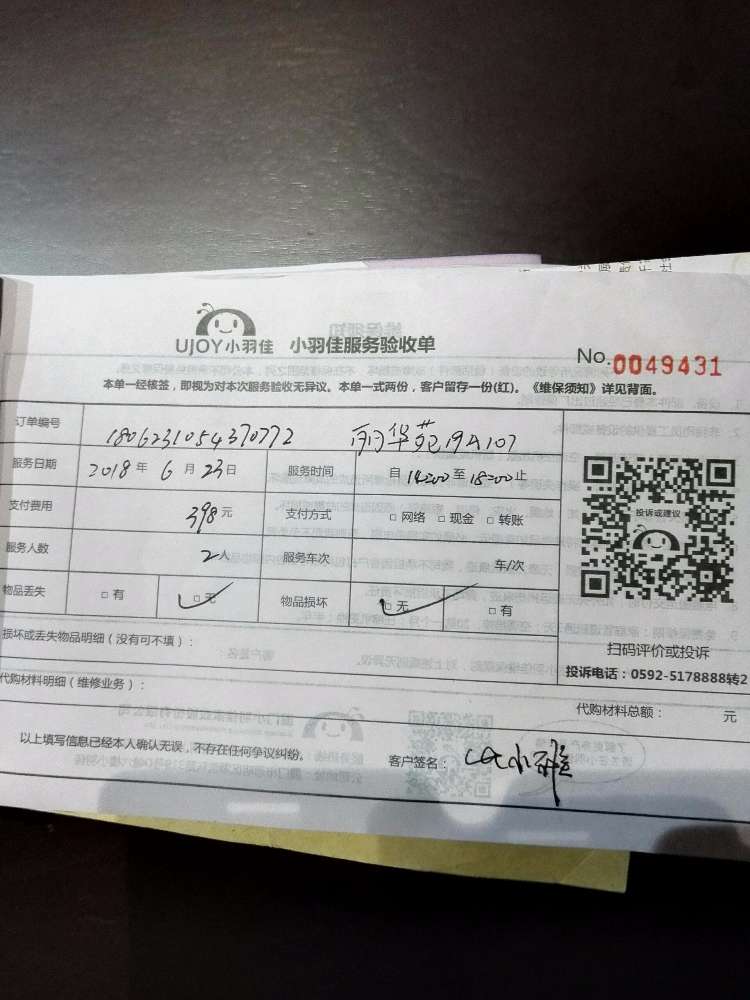 UJOY小羽佳 小羽佳服务验收单
No.0049431
本单一经核签，即视为对本次服务验收无异议。本单一式两份，客户留存一份(红)。《维保须知》详见背面。
订单编号 1806231054370772 丽华苑19A107
服务日期 2018年6月23日 服务时间 自14:00至18:00止
支付费用 398元 支付方式 □网络 □现金 □转账
投诉或建议
服务人数 2人 服务车次 车/次
物品丢失 □有 □无 物品损坏 □无 □有
损坏或丢失物品明细（没有可不填）：
扫码评价或投诉
投诉电话：0592-5178888转2
代购材料明细（维修业务）：
代购材料总额： 元
以上填写信息已经本人确认无误，不存在任何争议纠纷。
客户签名：